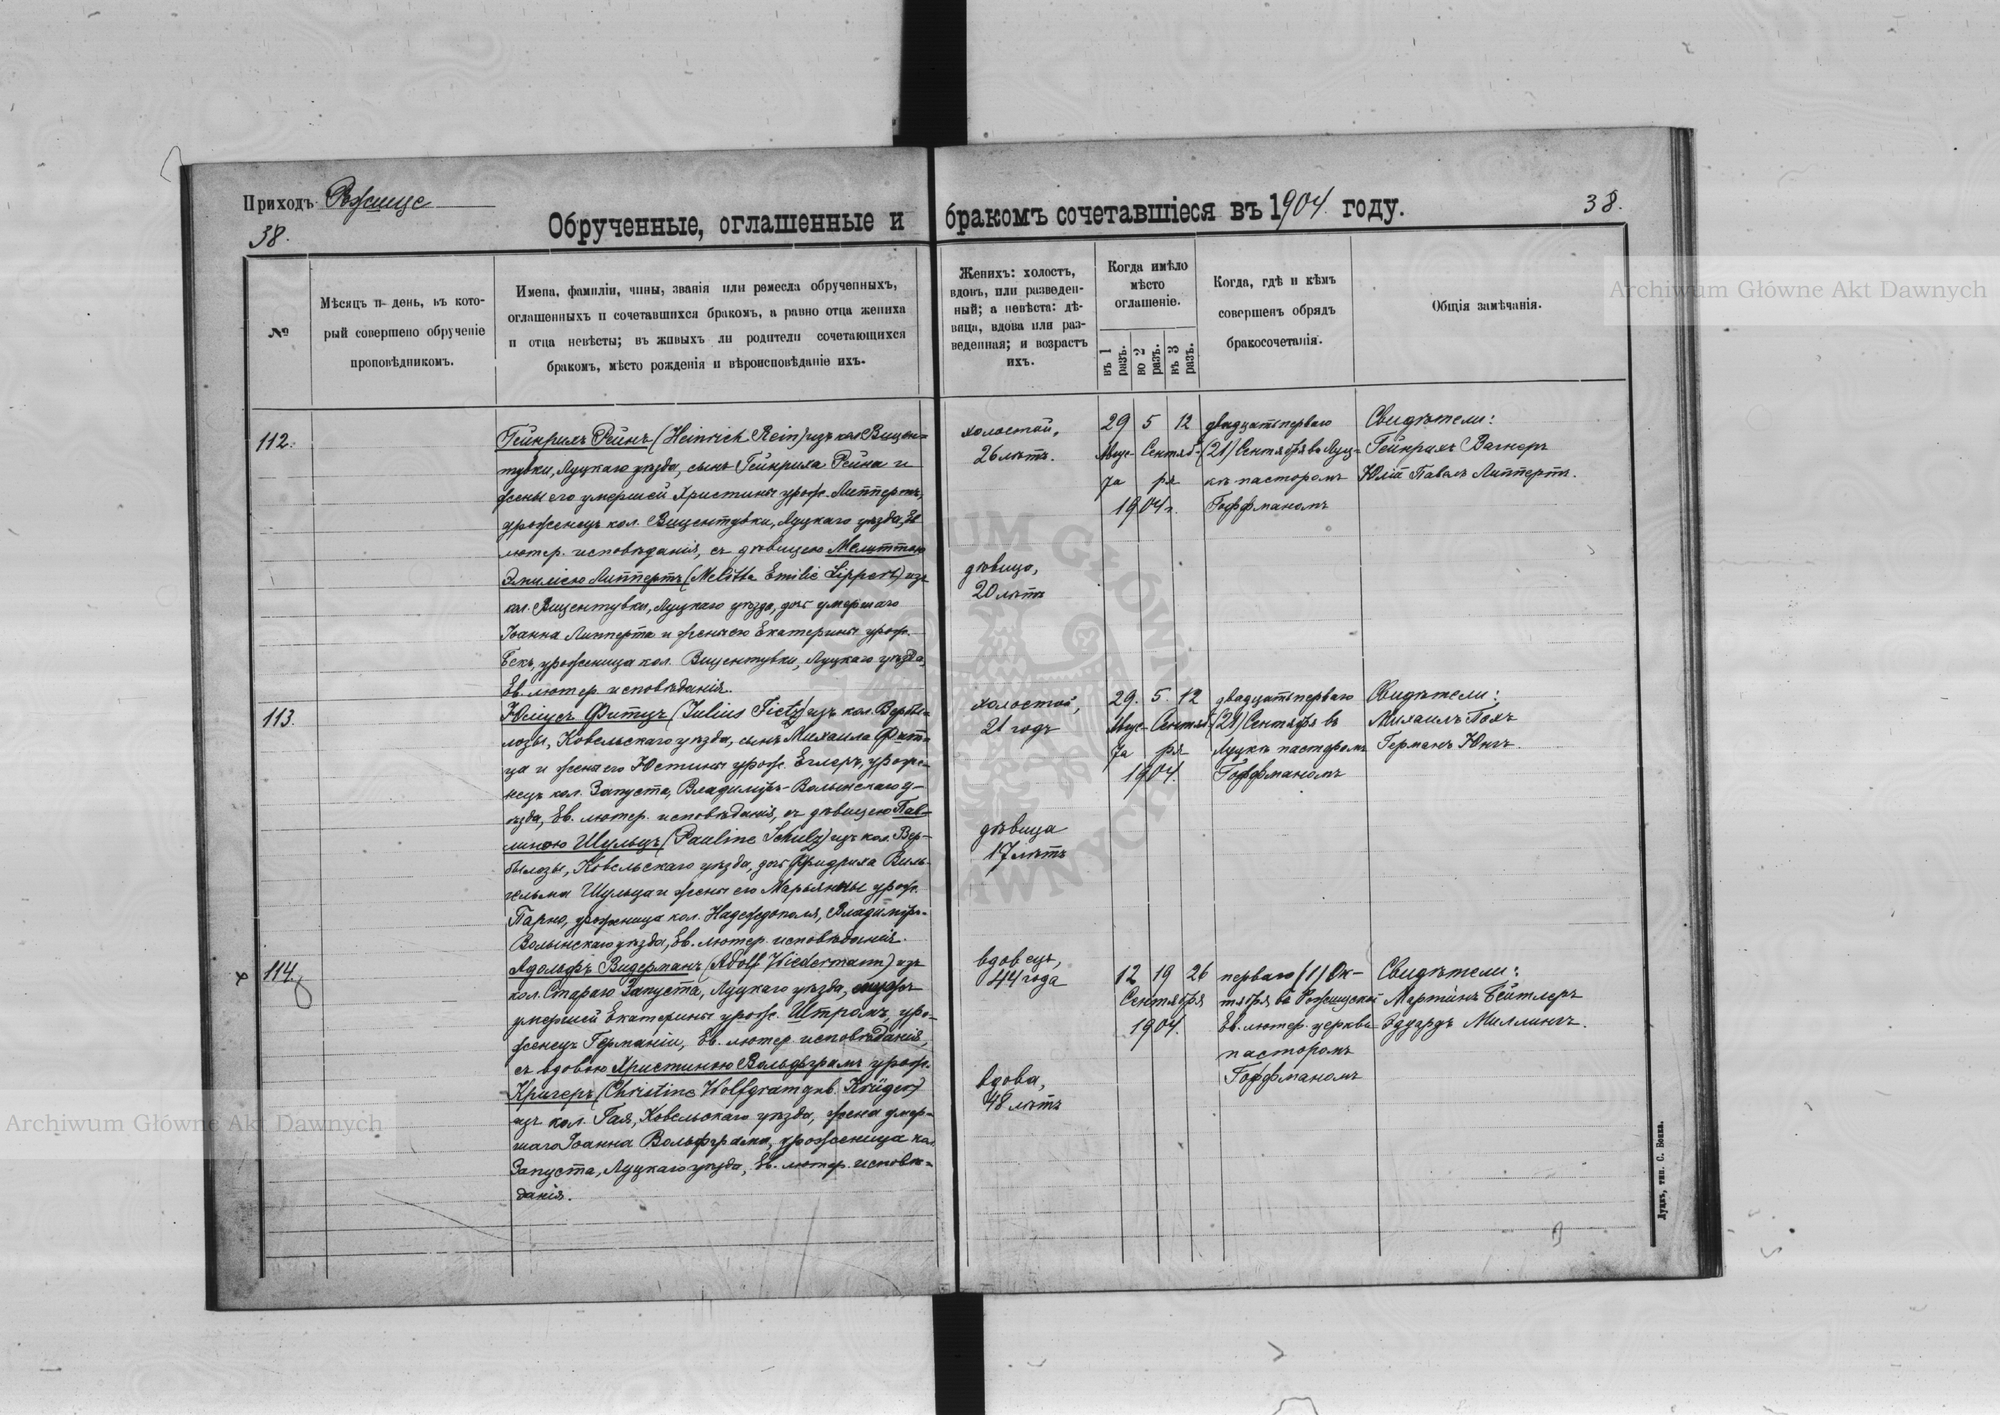 Приходъ Рожище
38.
Обрученные, оглашенные и бракомъ сочетавшіеся въ 1904 году.
38.
№
Мѣсяцъ и день, въ кото-
рый совершено обрученіе
проповѣдникомъ.
Имена, фамиліи, чины, званія или ремесла обрученныхъ,
оглашенныхъ и сочетавшихся бракомъ, а равно отца жениха
и отца невѣсты; въ живыхъ ли родители сочетающихся
бракомъ, мѣсто рожденія и вѣроисповѣданіе ихъ.
Женихъ: холостъ,
вдовъ, или разведен-
ный; а невѣста: дѣ-
вица, вдова или раз-
веденная; и возрастъ
ихъ.
Когда имѣло
мѣсто
оглашеніе.
въ 1 разъ.
во 2 разъ.
въ 3 разъ.
Когда, гдѣ и кѣмъ
совершенъ обрядъ
бракосочетанія.
Общія замѣчанія.
112.
Гейнрихъ Рейнъ (Heinrich Rein) изъ кол. Вицен-
тувки, Луцкаго уѣзда, сынъ Гейнриха Рейна и
жены его умершей Христины урож. Липпертъ,
уроженецъ кол. Вицентувки, Луцкаго уѣзда, Ев.
лютер. исповѣданія, съ дѣвицею Мелиттою
Эмиліею Липпертъ (Melitta Emilie Lippert) изъ
кол. Вицентувки, Луцкаго уѣзда, дочь умершаго
Іоанна Липперта и женою Екатерины урож.
Бекъ, уроженица кол. Вицентувки, Луцкаго уѣзда,
Ев. лютер. исповѣданія.
холостой,
26 лѣтъ.
дѣвица,
20 лѣтъ
29 5 12
Авгус- Сентяб-
та ря
1904 г.
двадцатьперваго
(21) Сентября въ Луц-
кѣ пасторомъ
Гоффманомъ
Свидѣтели:
Гейнрихъ Вагнеръ
Юлій Павелъ Липпертъ.
113.
Юліусъ Фитцъ (Julius Fietz) изъ кол. Вербы-
лозы, Ковельскаго уѣзда, сынъ Михаила Фит-
ца и жены его Юстины урож. Еглеръ, уроже-
нецъ кол. Запуста, Владимiръ-Волынскаго у-
ѣзда, Ев. лютер. исповѣданія, съ дѣвицею Пав-
линою Шульцъ (Pauline Schulz) изъ кол. Вер-
былозы, Ковельскаго уѣзда, дочь Фридриха Виль-
гельма Шульца и жены его Марьянны урож.
Парно, уроженица кол. Надеждополя, Владимiръ-
Волынскаго уѣзда, Ев. лютер. исповѣданія.
холостой,
21 годъ
дѣвица
17 лѣтъ
29. 5. 12
Авгус- Сентяб-
та ря
1904.
двадцатьперваго
(21) Сентября въ
Луцкѣ пасторомъ
Гоффманомъ
Свидѣтели:
Михаилъ Похъ
Германъ Юнгъ.
114
Адольфъ Видерманъ (Adolf Wiedermann) изъ
кол. Стараго Запуста, Луцкаго уѣзда, мужъ
умершей Екатерины урож. Штромъ, уро-
женецъ Германіи, Ев. лютер. исповѣданія,
съ вдовою Христиною Вольфграмъ урож.
Кригеръ (Christine Wolfgram geb. Krüger)
изъ кол. Гая, Ковельскаго уѣзда, жена умер-
шаго Іоанна Вольфграма, уроженица кол.
Запуста, Луцкаго уѣзда, Ев. лютер. исповѣ-
данія.
вдовецъ,
44 года
вдова,
48 лѣтъ
12 19 26
Сентября
1904.
перваго (1) Ок-
тября въ Рожищской
Ев. лютер. церкви
пасторомъ
Гоффманомъ
Свидѣтели:
Мартинъ Бейтлеръ
Эдуардъ Миллингъ.
Луцкъ, тип. С. Бонка.
Archiwum Główne Akt Dawnych
Archiwum Główne Akt Dawnych